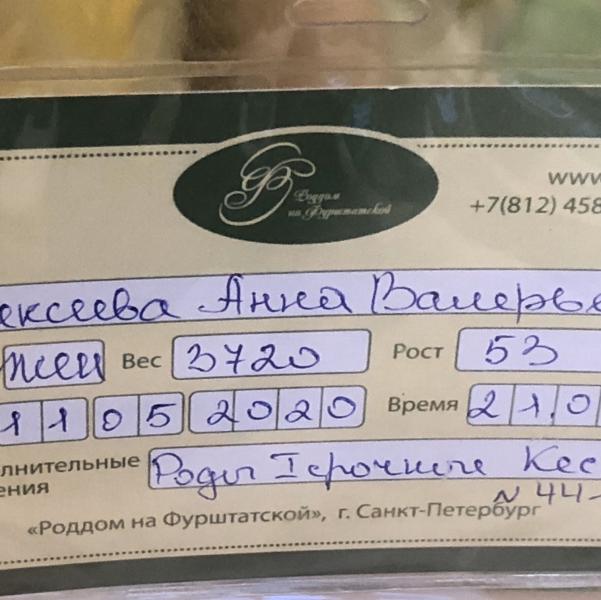 Роддом
на Фурштатской
www
+7(812) 458
ексеева Анна Валерье
жен Вес 3720 Рост 53
11 05 2020 Время 21.0
лнительные Роды I срочные Кес
ения
N 44-
«Роддом на Фурштатской», г. Санкт-Петербург